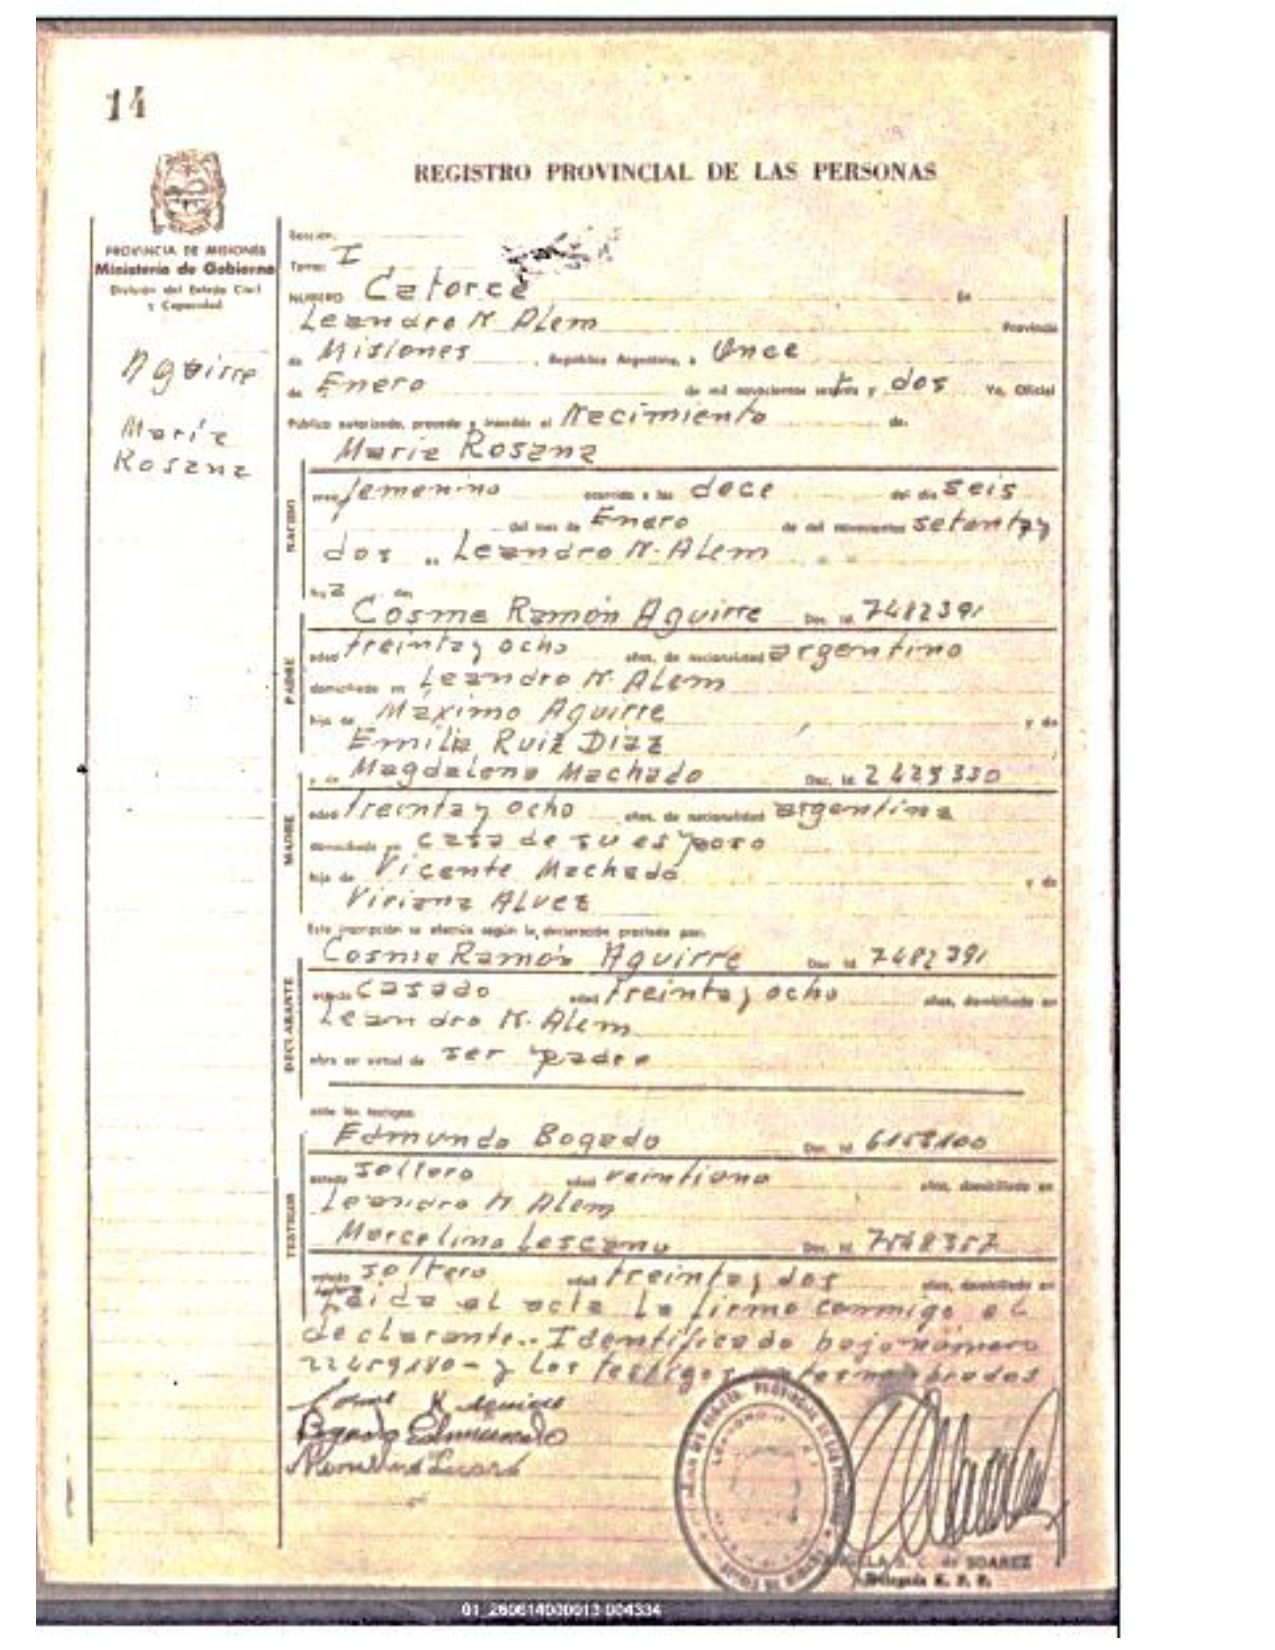 14
REGISTRO PROVINCIAL DE LAS PERSONAS
PROVINCIA DE MISIONES
Ministerio de Gobierno
División del Estado Civil
y Capacidad
Aguirre
María
Rosana
Sección:
Tomo: I
NUMERO Catorce En
Leandro N. Alem Provincia
de Misiones, República Argentina, a Once
de Enero de mil novecientos setenta y dos Yo, Oficial
Público autorizado, procedo a inscribir el Nacimiento de:
María Rosana
NACIDO
sexo femenino ocurrido a las doce del día seis
del mes de Enero de mil novecientos setenta y
dos en Leandro N. Alem
hija de:
Cosme Ramón Aguirre Doc. Id. 7482391
PADRE
edad treinta y ocho años, de nacionalidad argentino
domiciliado en Leandro N. Alem
hijo de Máximo Aguirre y de
Emilia Ruiz Diaz
y de Magdalena Machado Doc. Id.
MADRE
edad treinta y ocho años, de nacionalidad argentina
domiciliada en casa de su esposo
hija de Vicente Machado y de
Viviana Alvez
Esta inscripción se efectúa según la declaración prestada por:
Cosme Ramón Aguirre Doc. Id. 7482391
DECLARANTE
estado casado edad treinta y ocho años, domiciliado en
Leandro N. Alem
obra en virtud de ser padre
ante los testigos:
Edmundo Bogado Doc. Id.
TESTIGOS
estado soltero edad veintiuno años, domiciliado en
Leandro N. Alem
Marcelino Lescano Doc. Id.
estado soltero edad treinta y dos años, domiciliado en
Leída el acta la firma conmigo el
declarante.. Identificado bajo número
y los testigos antes nombrados
Bogado Edmundo
de SUAREZ
Delegada R. P. P.
01_260614000013-004334